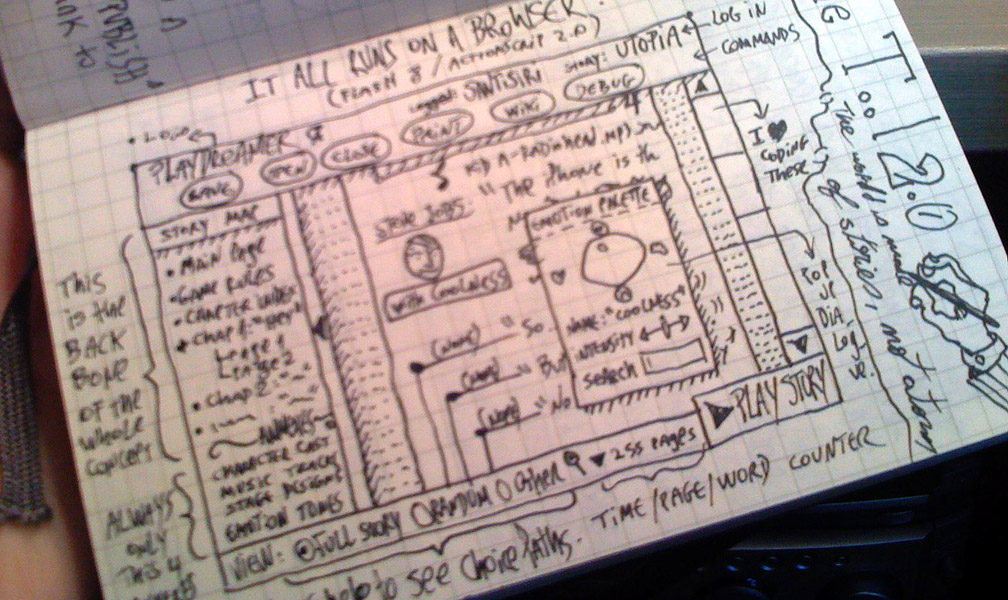 PUBLISH
IT ALL RUNS ON A BROWSER.
(FLASH 8 / ACTIONSCRIPT 2.0)
LOG IN
COMMANDS
logged: SANTISIRI STORY: UTOPIA
PLAYDREAMER
SAVE OPEN CLOSE PRINT WIKI DEBUG
STORY MAP
• MAIN PAGE
• GAME RULES
• CHAP 1: "HEY"
LEAGE 1
LEAGE 2
• CHAP 2:
CHARACTER CAST
MUSIC TRACKS
STAGE DESIGNS
EMOTION TONES
KID A-RADIOHEAD.MP3
STEVE JOBS:
"The iPhone is th
WITH COOLNESS
(NAME) "So
(NAME) "But
(NAME) "No
EMOTION PALETTE
NAME: "COOLNESS"
INTENSITY
SEARCH
I ♥
CODING
THESE
POP
UP
DIA
LOG
PLAY STORY
VIEW: FULL STORY RANDOM OTHER 255 PAGES
This
is the
BACK
BONE
OF THE
whole
CONCEPT
ALWAYS
ONLY
This 4
to see choice paths.
TIME/PAGE/WORD COUNTER
The world is made
of stories, not atoms